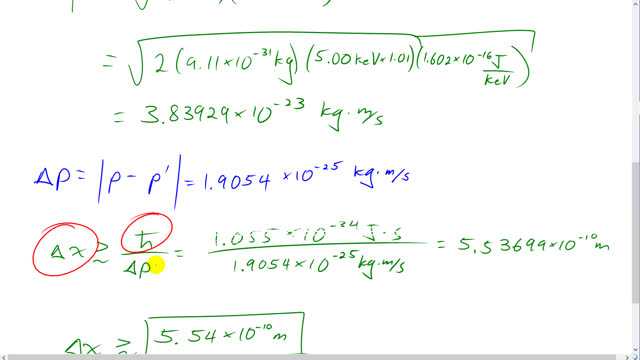 = √2 (9.11×10⁻³¹ kg) (5.00 keV × 1.01) (1.602×10⁻¹⁶ J/keV)
= 3.83929×10⁻²³ kg·m/s
Δp = |p − p'| = 1.9054×10⁻²⁵ kg·m/s
Δx ≳ ħ/Δp = 1.055×10⁻³⁴ J·s / 1.9054×10⁻²⁵ kg·m/s = 5.53699×10⁻¹⁰ m
Δx ≳ 5.54×10⁻¹⁰ m